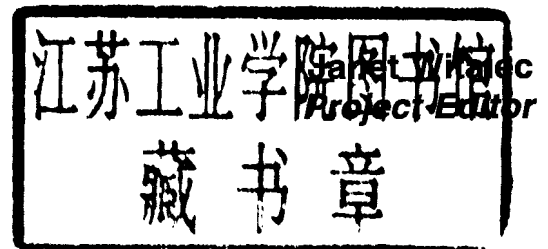 江苏工业学院图书馆
Janet Witalec
Project Editor
藏书章